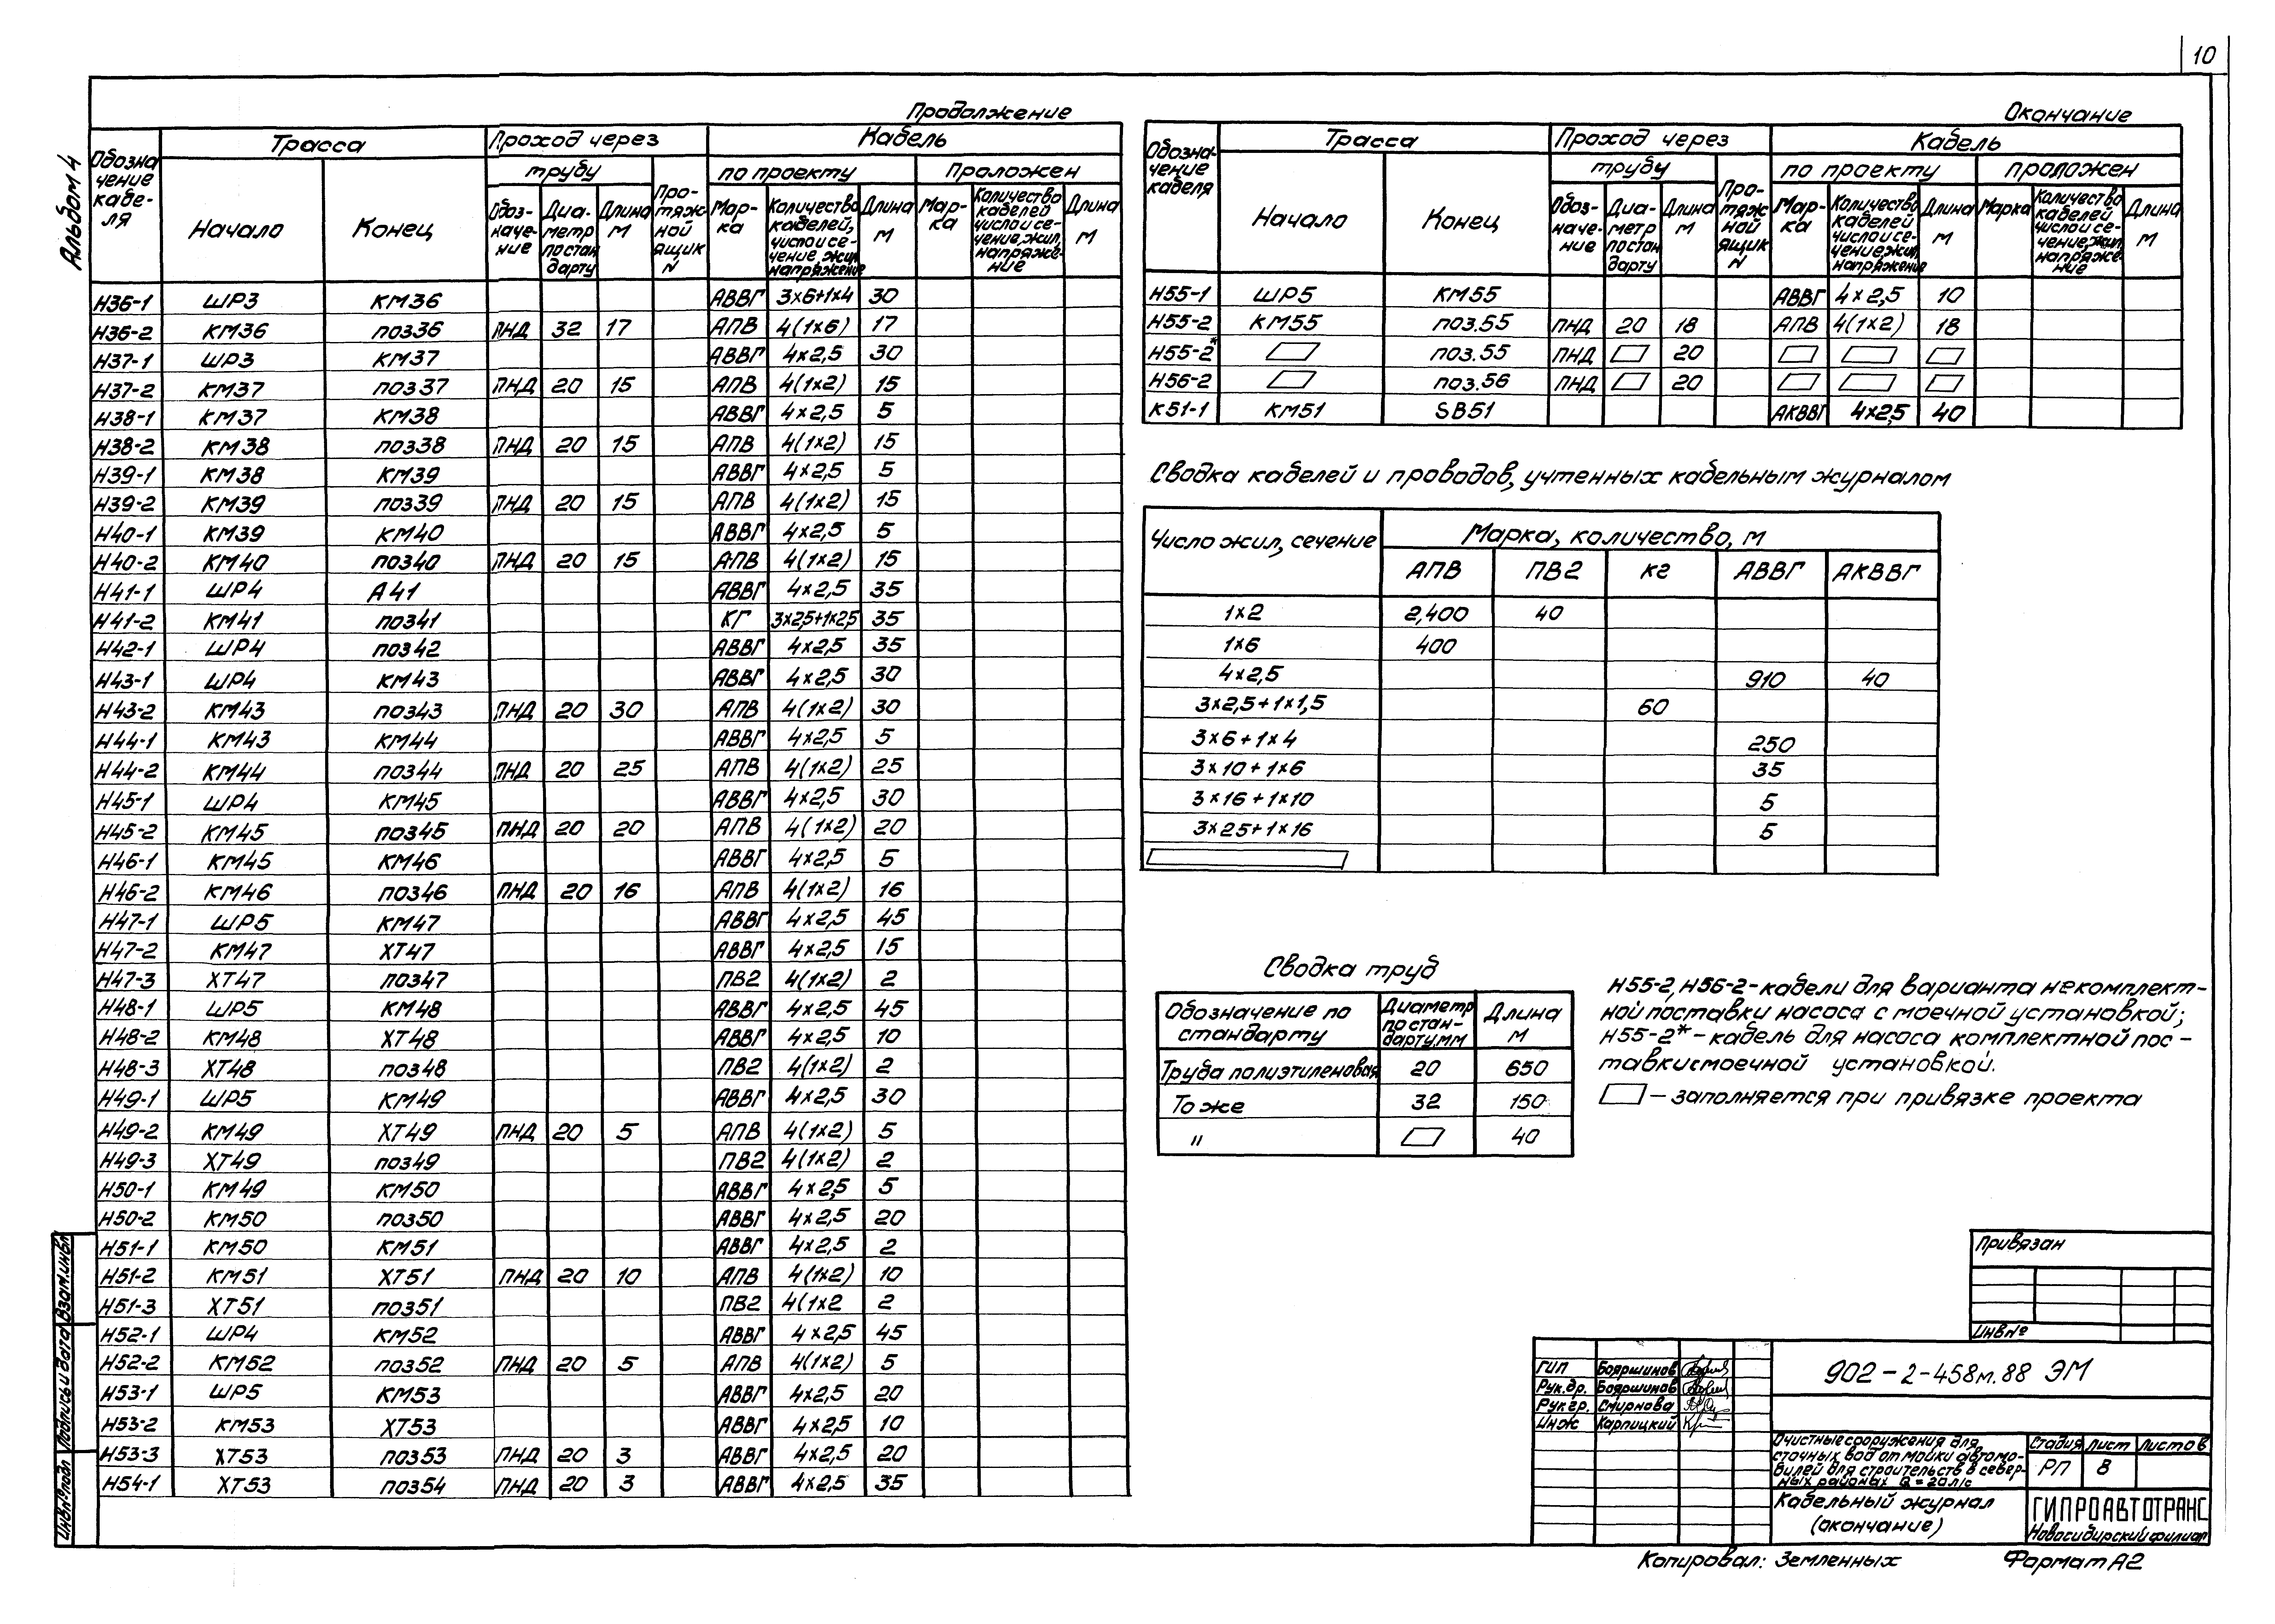 10
Альбом 4
Продолжение
Обозначение кабеля | Трасса | Проход через | Кабель
трубу | Протяжной ящик N | по проекту | Проложен
Начало | Конец | Обозначение | Диаметр по стандарту | Длина м | Марка | Количество кабелей, число и сечение жил, напряжение | Длина м | Марка | Количество кабелей число и сечение жил, напряжение | Длина м
Н36-1 ШР3 КМ36 АВВГ 3×6+1×4 30
Н36-2 КМ36 поз36 ПНД 32 17 АПВ 4(1×6) 17
Н37-1 ШР3 КМ37 АВВГ 4×2,5 30
Н37-2 КМ37 поз37 ПНД 20 15 АПВ 4(1×2) 15
Н38-1 КМ37 КМ38 АВВГ 4×2,5 5
Н38-2 КМ38 поз38 ПНД 20 15 АПВ 4(1×2) 15
Н39-1 КМ38 КМ39 АВВГ 4×2,5 5
Н39-2 КМ39 поз39 ПНД 20 15 АПВ 4(1×2) 15
Н40-1 КМ39 КМ40 АВВГ 4×2,5 5
Н40-2 КМ40 поз40 ПНД 20 15 АПВ 4(1×2) 15
Н41-1 ШР4 А41 АВВГ 4×2,5 35
Н41-2 КМ41 поз41 КГ 3×2,5+1×2,5 35
Н42-1 ШР4 поз42 АВВГ 4×2,5 35
Н43-1 ШР4 КМ43 АВВГ 4×2,5 30
Н43-2 КМ43 поз43 ПНД 20 30 АПВ 4(1×2) 30
Н44-1 КМ43 КМ44 АВВГ 4×2,5 5
Н44-2 КМ44 поз44 ПНД 20 25 АПВ 4(1×2) 25
Н45-1 ШР4 КМ45 АВВГ 4×2,5 30
Н45-2 КМ45 поз45 ПНД 20 20 АПВ 4(1×2) 20
Н46-1 КМ45 КМ46 АВВГ 4×2,5 5
Н46-2 КМ46 поз46 ПНД 20 16 АПВ 4(1×2) 16
Н47-1 ШР5 КМ47 АВВГ 4×2,5 45
Н47-2 КМ47 ХТ47 АВВГ 4×2,5 15
Н47-3 ХТ47 поз47 ПВ2 4(1×2) 2
Н48-1 ШР5 КМ48 АВВГ 4×2,5 45
Н48-2 КМ48 ХТ48 АВВГ 4×2,5 10
Н48-3 ХТ48 поз48 ПВ2 4(1×2) 2
Н49-1 ШР5 КМ49 АВВГ 4×2,5 30
Н49-2 КМ49 ХТ49 ПНД 20 5 АПВ 4(1×2) 5
Н49-3 ХТ49 поз49 ПВ2 4(1×2) 2
Н50-1 КМ49 КМ50 АВВГ 4×2,5 5
Н50-2 КМ50 поз50 АВВГ 4×2,5 20
Н51-1 КМ50 КМ51 АВВГ 4×2,5 2
Н51-2 КМ51 ХТ51 ПНД 20 10 АПВ 4(1×2) 10
Н51-3 ХТ51 поз51 ПВ2 4(1×2 2
Н52-1 ШР4 КМ52 АВВГ 4×2,5 45
Н52-2 КМ52 поз52 ПНД 20 5 АПВ 4(1×2) 5
Н53-1 ШР5 КМ53 АВВГ 4×2,5 20
Н53-2 КМ53 ХТ53 АВВГ 4×2,5 10
Н53-3 ХТ53 поз53 ПНД 20 3 АВВГ 4×2,5 20
Н54-1 ХТ53 поз54 ПНД 20 3 АВВГ 4×2,5 35
Окончание
Обозначение кабеля | Трасса | Проход через | Кабель
трубу | Протяжной ящик N | по проекту | проложен
Начало | Конец | Обозначение | Диаметр по стандарту | Длина м | Марка | Количество кабелей число и сечение жил, напряжение | Длина м | Марка | Количество кабелей число и сечение, жил, напряжение | Длина м
Н55-1 ШР5 КМ55 АВВГ 4×2,5 10
Н55-2 КМ55 поз.55 ПНД 20 18 АПВ 4(1×2) 18
Н55-2* поз.55 ПНД 20
Н56-2 поз.56 ПНД 20
К51-1 КМ51 SB51 АКВВГ 4×2,5 40
Сводка кабелей и проводов, учтенных кабельным журналом
Число жил, сечение | Марка, количество, м
АПВ ПВ2 КГ АВВГ АКВВГ
1×2 2,400 40
1×6 400
4×2,5 910 40
3×2,5+1×1,5 60
3×6+1×4 250
3×10+1×6 35
3×16+1×10 5
3×25+1×16 5
Сводка труб
Обозначение по стандарту | Диаметр по стандарту, мм | Длина м
Труба полиэтиленовая 20 650
То же 32 150
" 40
Н55-2, Н56-2 - кабели для варианта некомплект-
ной поставки насоса с моечной установкой;
Н55-2* - кабель для насоса комплектной пос-
тавки с моечной установкой.
— заполняется при привязке проекта
Привязан
Инв№
ГИП Бояршинов
Рук.др. Бояршинов
Рук гр. Смирнова
Инж Карпицкий
902-2-458м.88 ЭМ
Очистные сооружения для
сточных вод от мойки автомо-
билей для строительств в север-
ных районах Q = 20 л/с
Стадия Лист Листов
РП 8
Кабельный журнал
(окончание)
ГИПРОАВТОТРАНС
Новосибирский филиал
Инв№подл Подпись и дата Взам.инв№
Копировал: Земленных
Формат А2